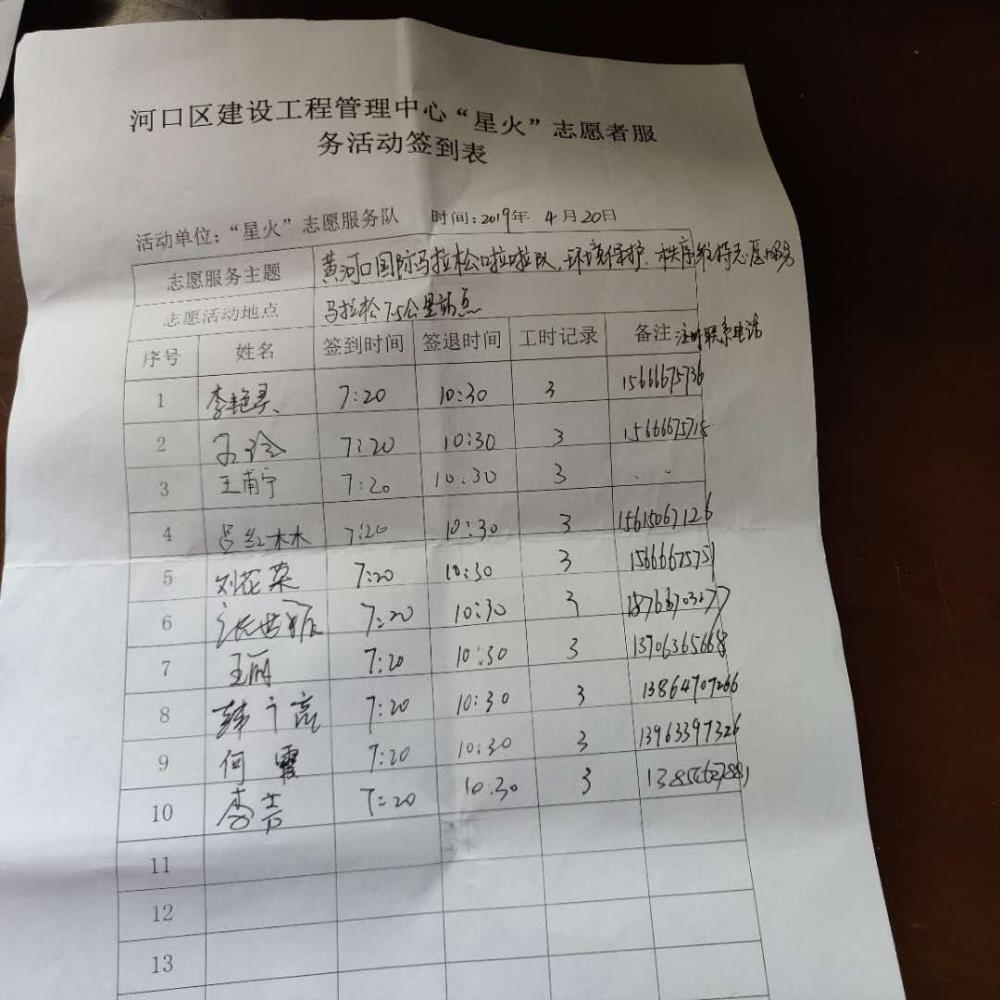 河口区建设工程管理中心“星火”志愿者服
务活动签到表
活动单位：“星火”志愿服务队 时间：2019年 4月20日
志愿服务主题 黄河口国际马拉松啦啦队，环境保护、秩序维持志愿服务
志愿活动地点 马拉松7.5公里站点
序号 姓名 签到时间 签退时间 工时记录 备注 注明联系电话
1 李艳 7:20 10:30 3 15666675736
2 7:20 10:30 3
3 王甫宁 7:20 10:30 3
4 吕红林 7:20 10:30 3 15615067126
5 刘花荣 7:20 10:30 3 15666675751
6 张世 7:20 10:30 3
7 王丽 7:20 10:30 3 13706365668
8 韩 亮 7:20 10:30 3 13864707266
9 何霞 7:20 10:30 3 13963397326
10 李 7:20 10:30 3
11
12
13